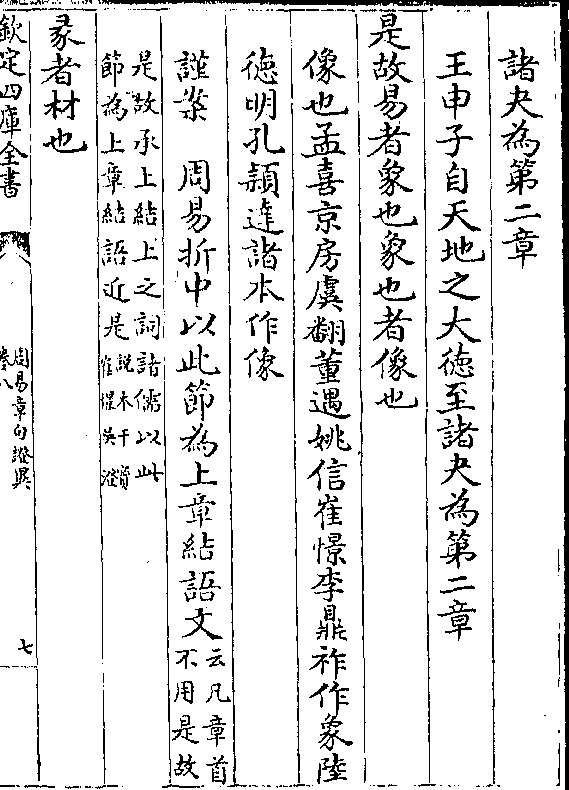 諸夬為第二章
王申子自天地之大徳至諸夬為第二章
是故易者象也象也者像也
像也孟喜京房虞翻董遇姚信崔憬李鼎祚作象陸
徳明孔頴逹諸本作像
謹案　周易折中以此節為上章結語文云凡章首
不用是故
是故承上結上之詞諸儒以此
節為上章結語近是説本干寳
崔憬吳澄
彖者材也
欽定四庫全書
周易章句證異
卷八
七